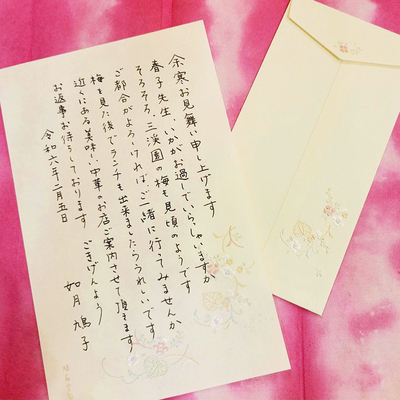 余寒お見舞い申し上げます
春子先生、いかがお過しでいらっしゃいますか
そろそろ、三渓園の梅も見頃のようです
ご都合がよろしければ、ご一緒に行ってみませんか
梅を見た後でランチも出来ましたらうれしいです
近くにある美味しい中華のお店ご案内させて頂きます
お返事お待ちしております
ごきげんよう
令和六年二月五日
如月 鳩子